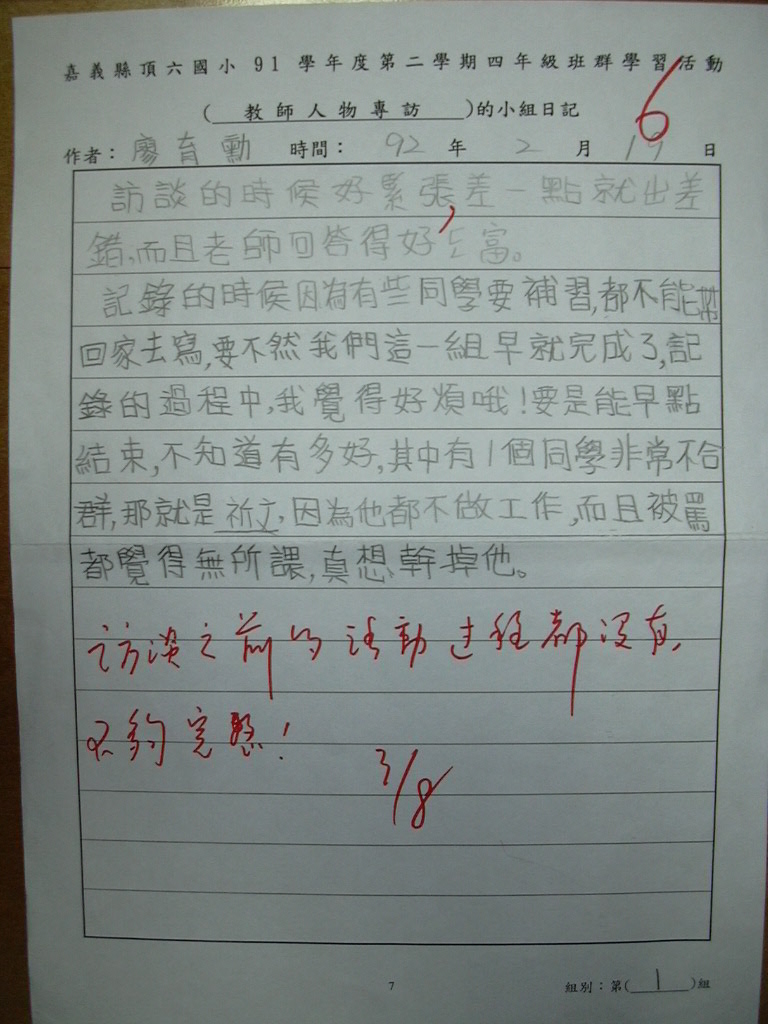 嘉義縣頂六國小91學年度第二學期四年級班群學習活動
(教師人物專訪)的小組日記
6
作者：廖育勳 時間：92年2月19日
訪談的時候好緊張,差一點就出差
錯,而且老師回答得好富。
記錄的時候因為有些同學要補習,都不能帶
回家去寫,要不然我們這一組早就完成了,記
錄的過程中,我覺得好煩哦!要是能早點
結束,不知道有多好,其中有1個同學非常不合
群,那就是祈文,因為他都不做工作,而且被罵
都覺得無所謂,真想幹掉他。
訪談之前的活動過程都沒有,
不夠完整!
3/8
7
組別：第(1)組